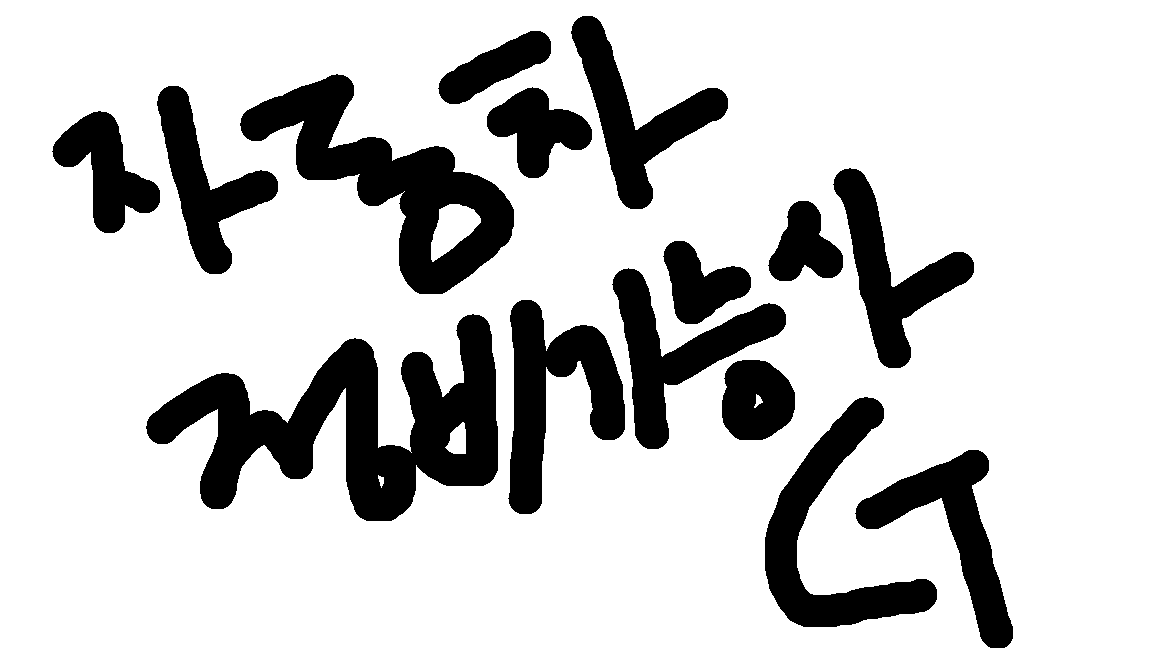 자동차
정비기능사
CT